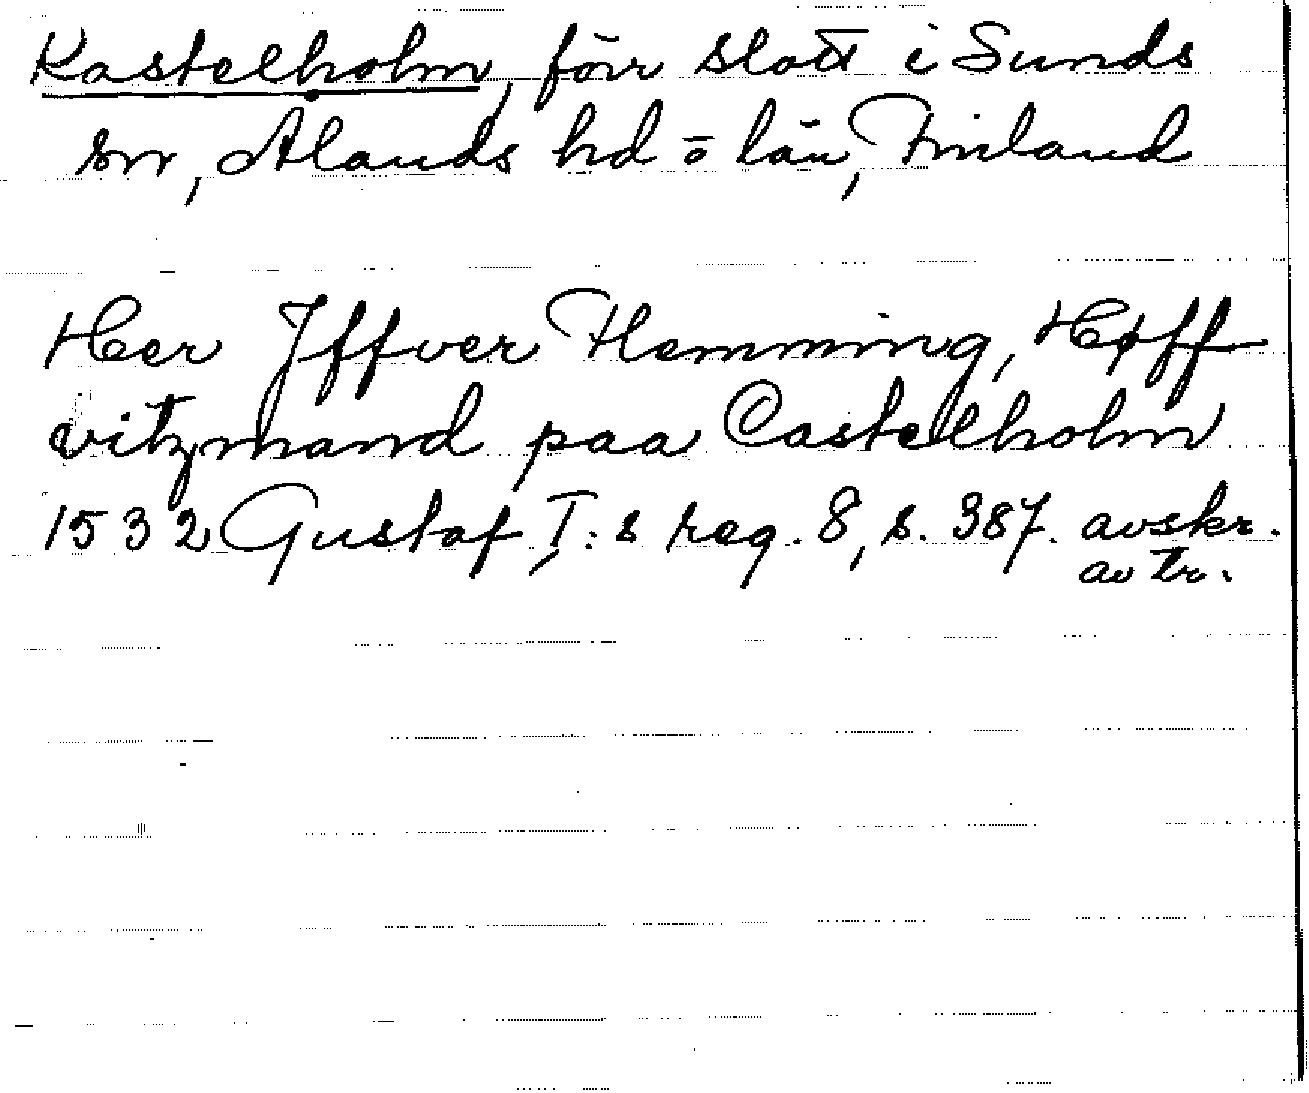 Kastelholm, förr slott i Sunds
sn, Ålands hd o län, Finland
Her Jffver Flemming, Høff
vitzmand paa Castelholm
1532 Gustaf I:s reg. 8, s. 387. avskr.
av tr.